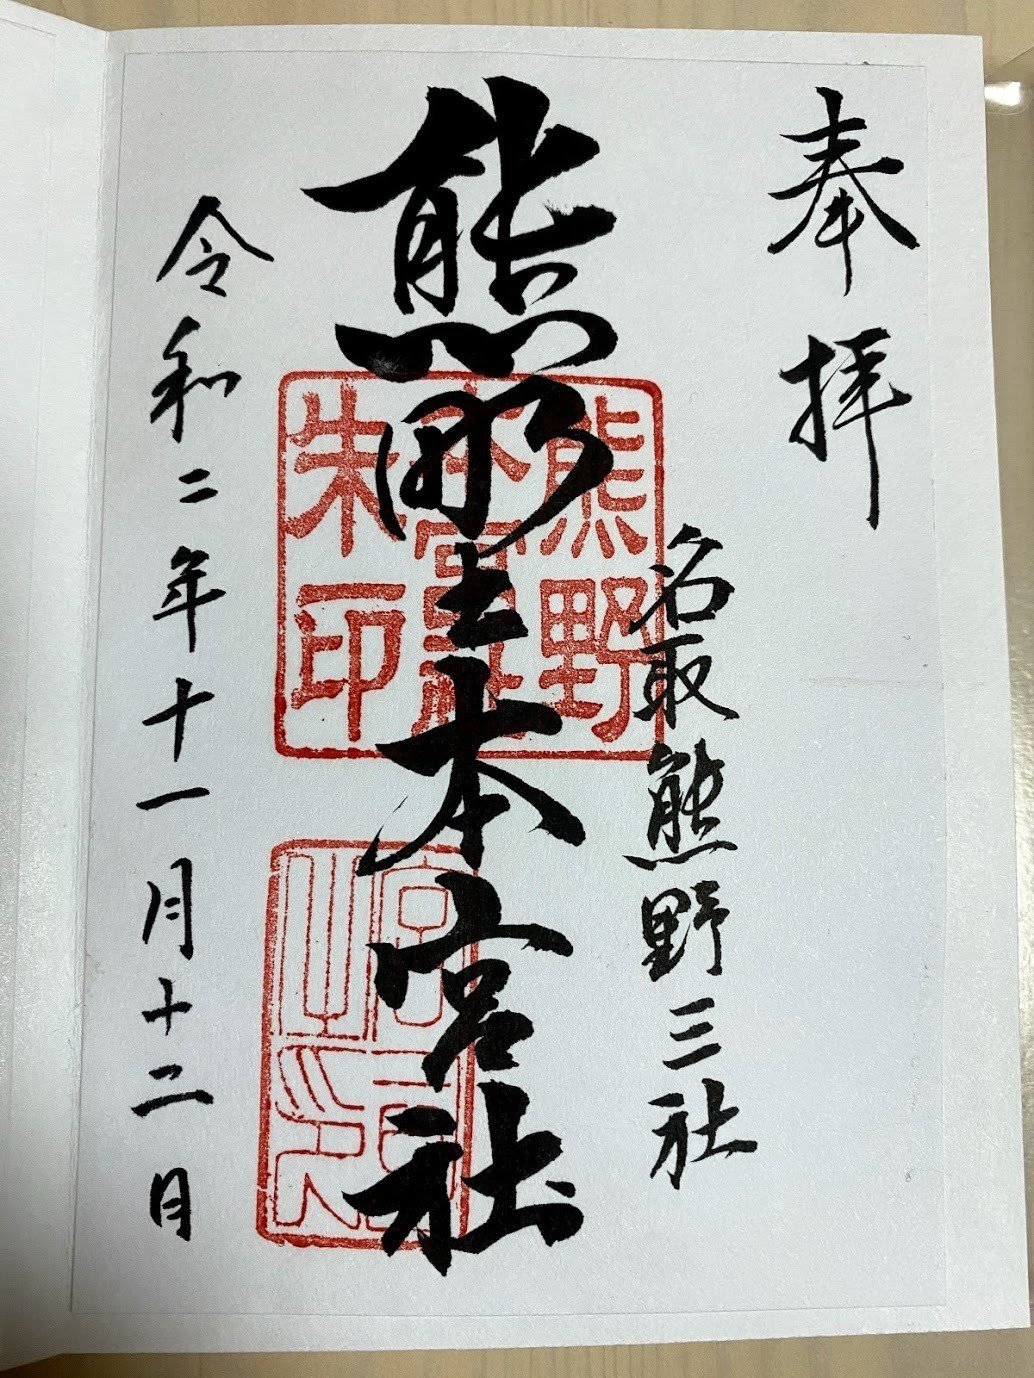 奉拝
名取熊野三社
熊野本宮社
令和二年十一月十二日
熊野
本宮社
朱印